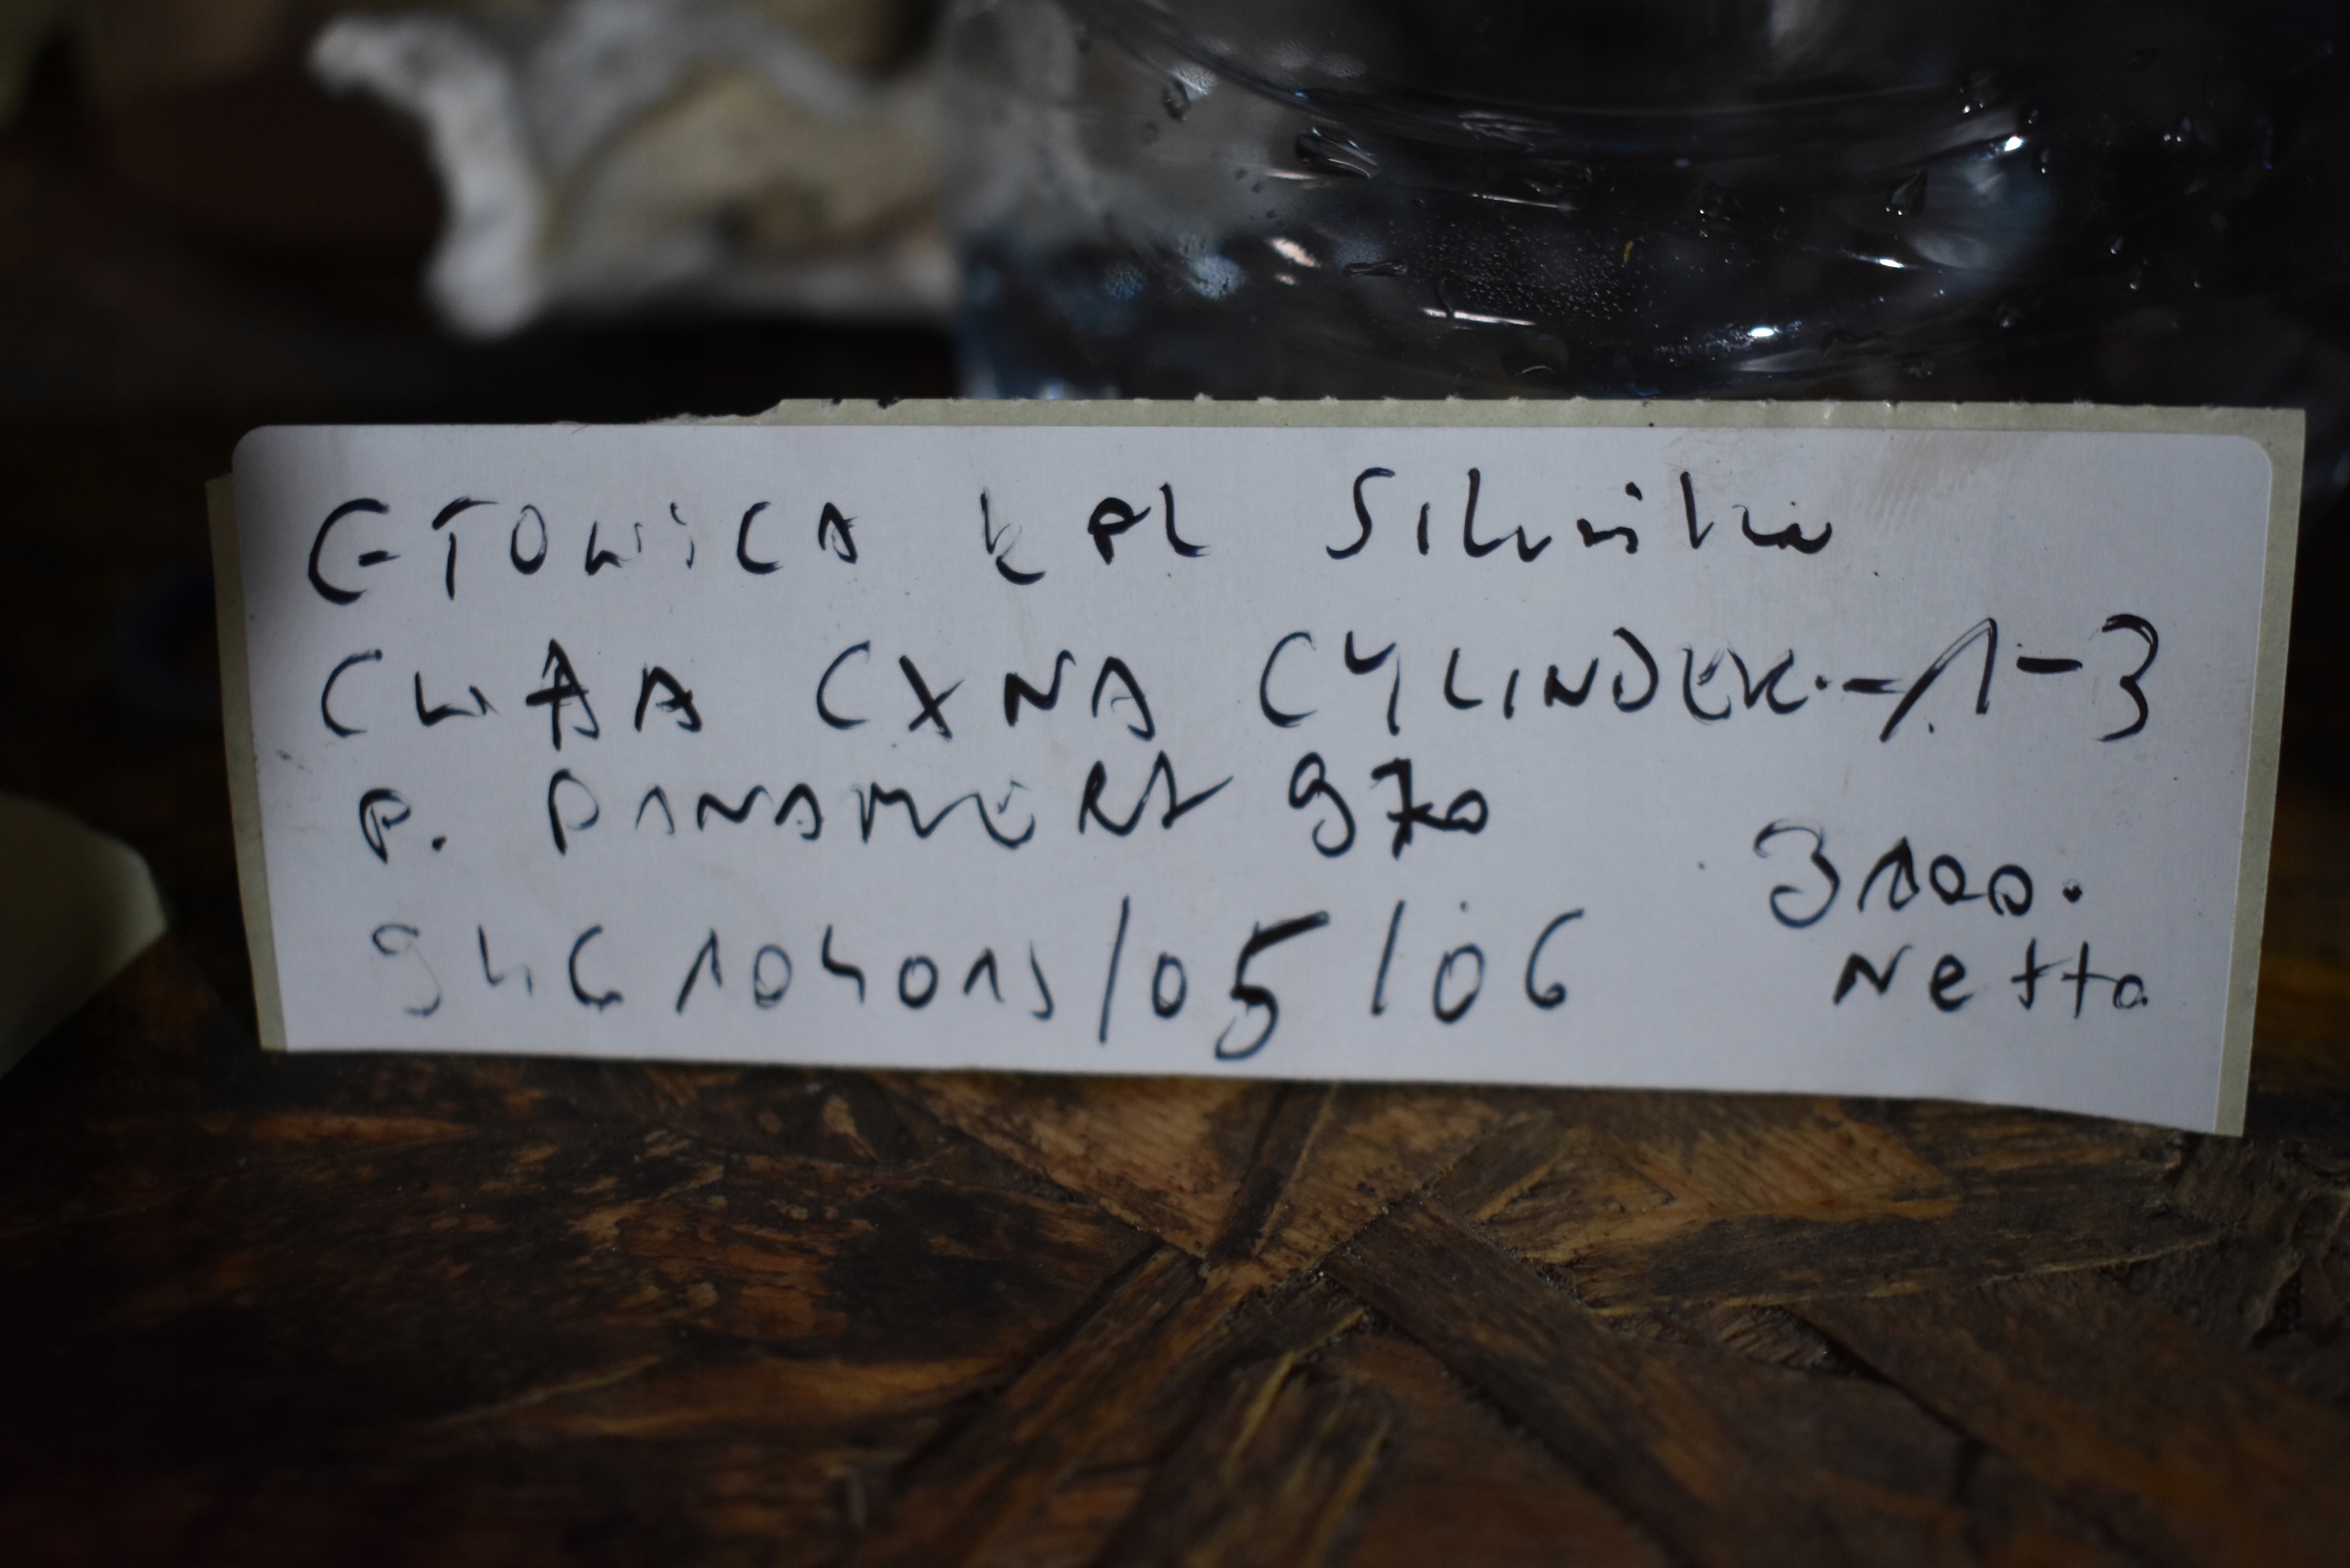 GŁOWICA KPL Silnika
CWAA CXNA CYLINDER.-1-3
P. PANAMERA 970
94610401S/05/06
3100.
Netto